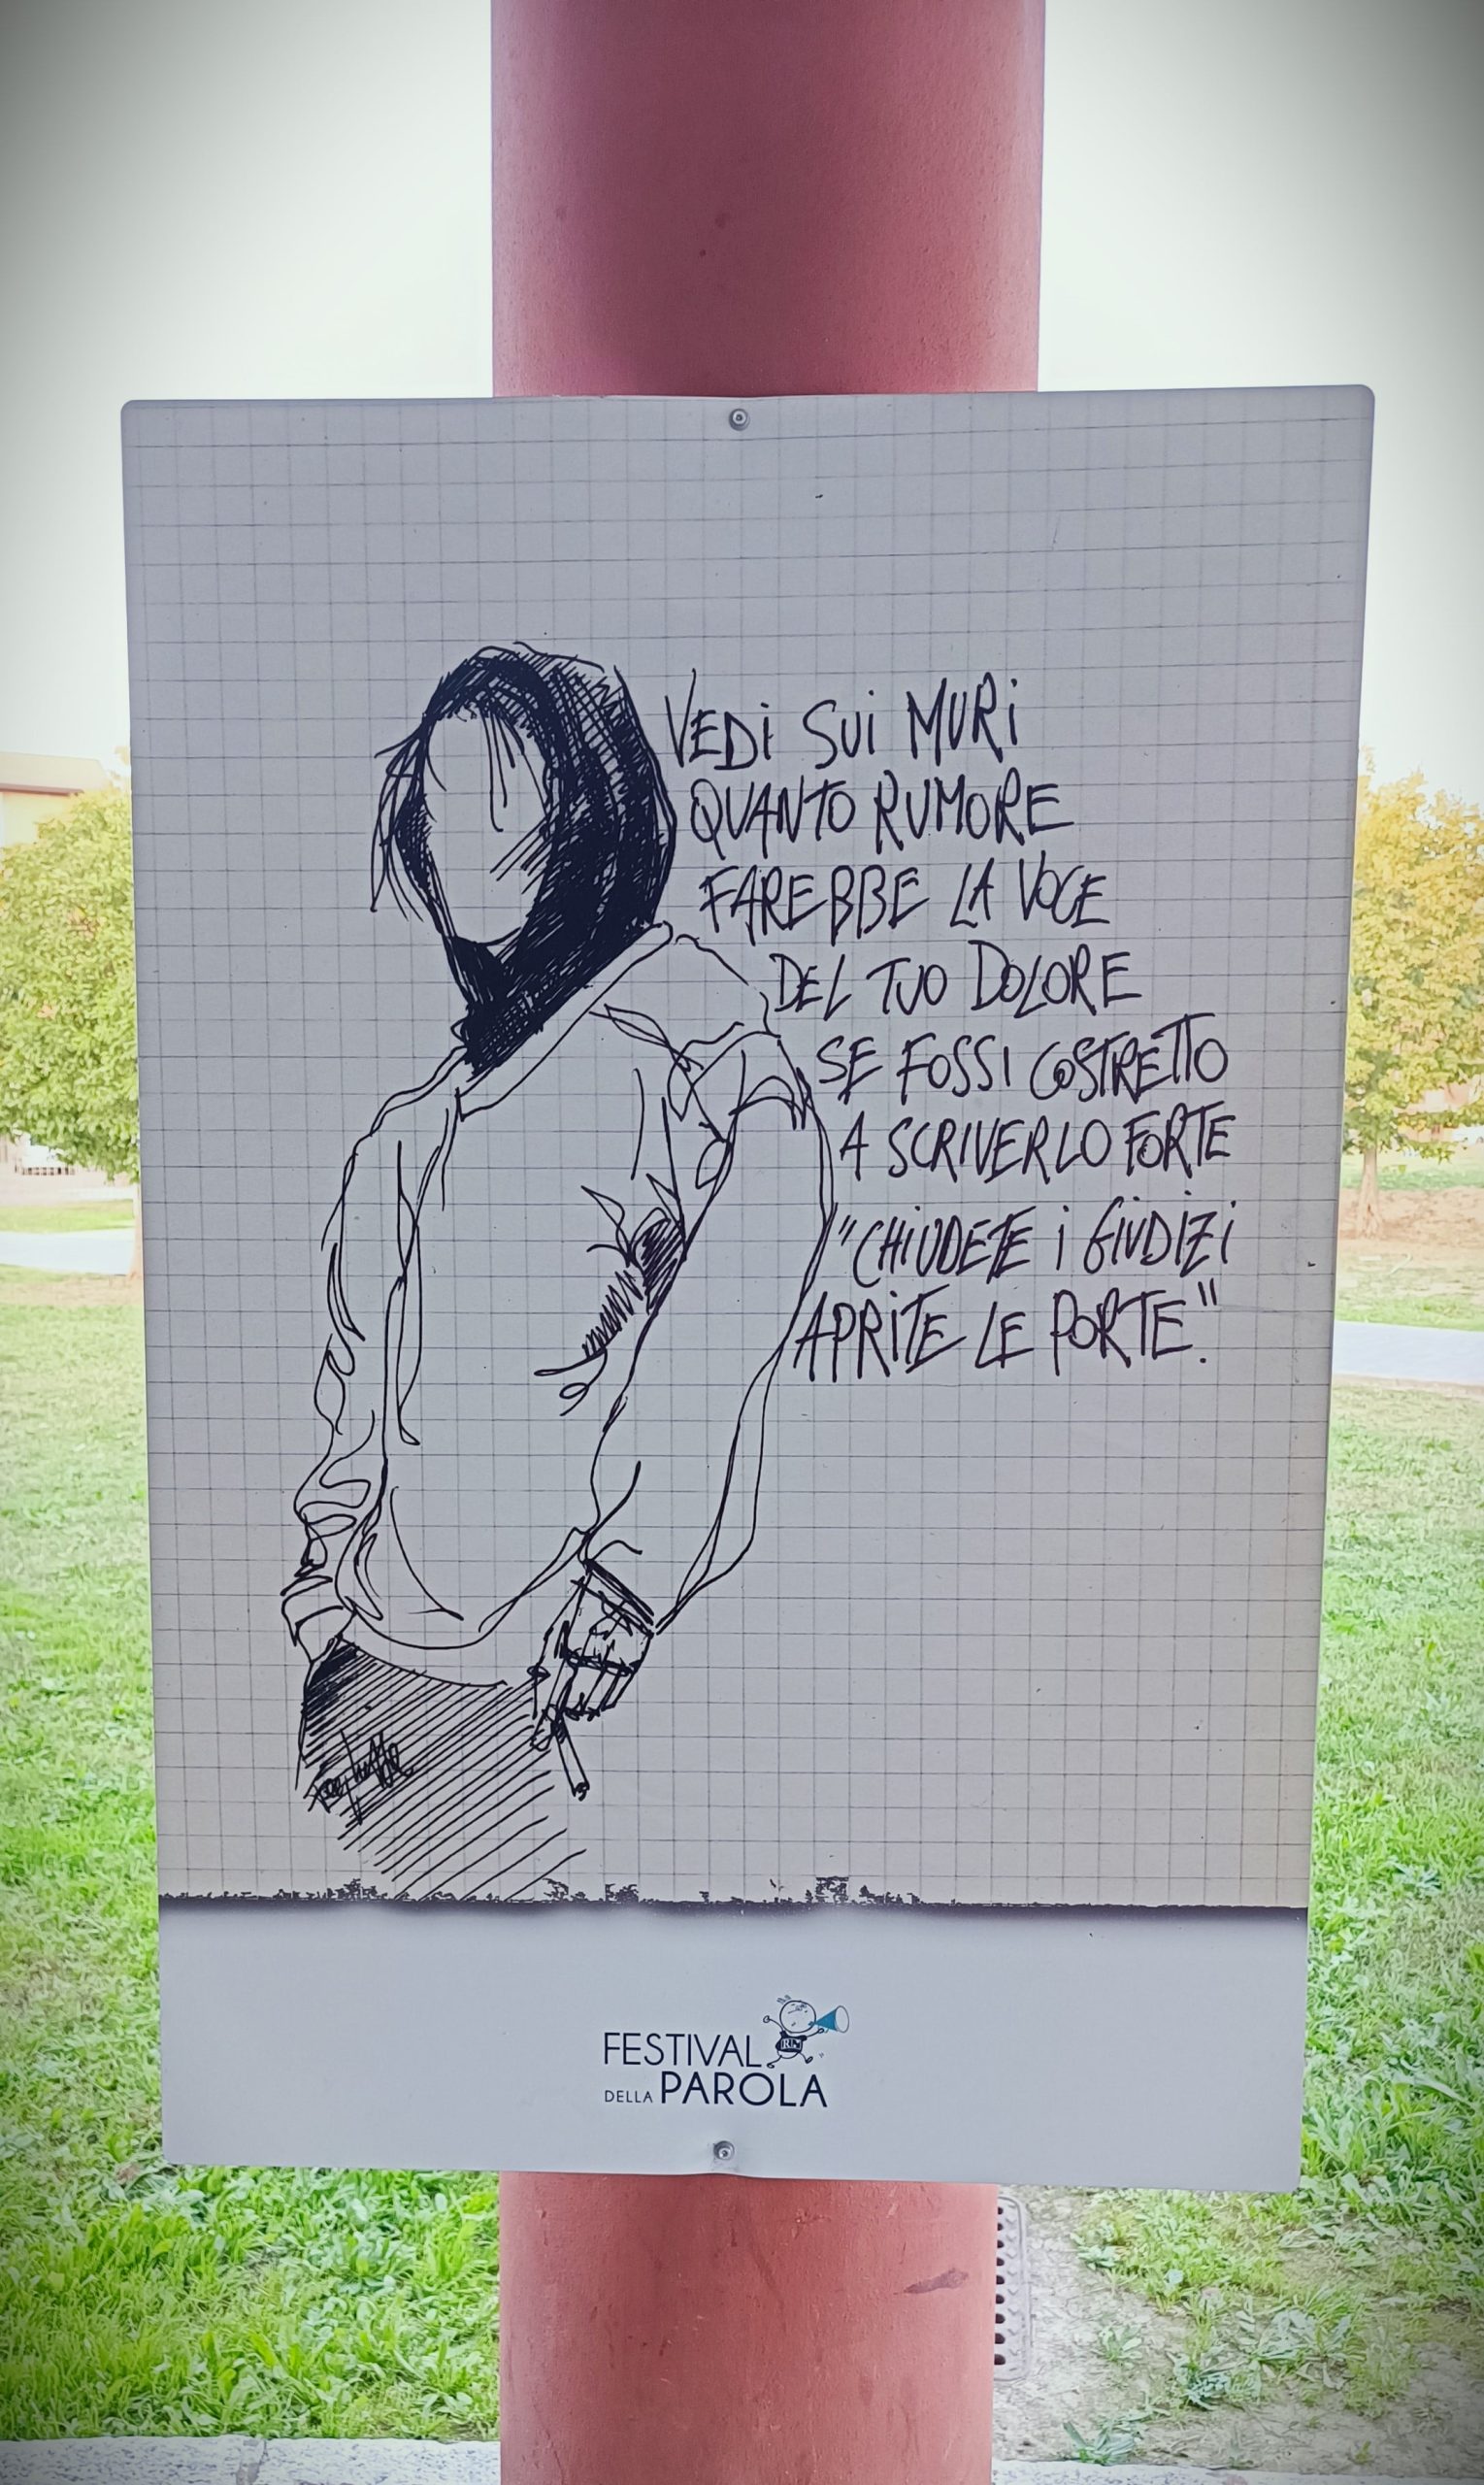 VEDI SUI MURI
QUANTO RUMORE
FAREBBE LA VOCE
DEL TUO DOLORE
SE FOSSI COSTRETTO
A SCRIVERLO FORTE
"CHIUDETE I GIUDIZI
APRITE LE PORTE."
FESTIVAL
DELLA PAROLA